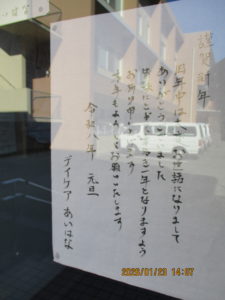 謹賀新年
旧年中は お世話になりまして
ありがとうございました
一年となりますよう
お祈り申し上げます
本年もよろしくお願いいたします
令和八年 元旦
デイケア あいはな